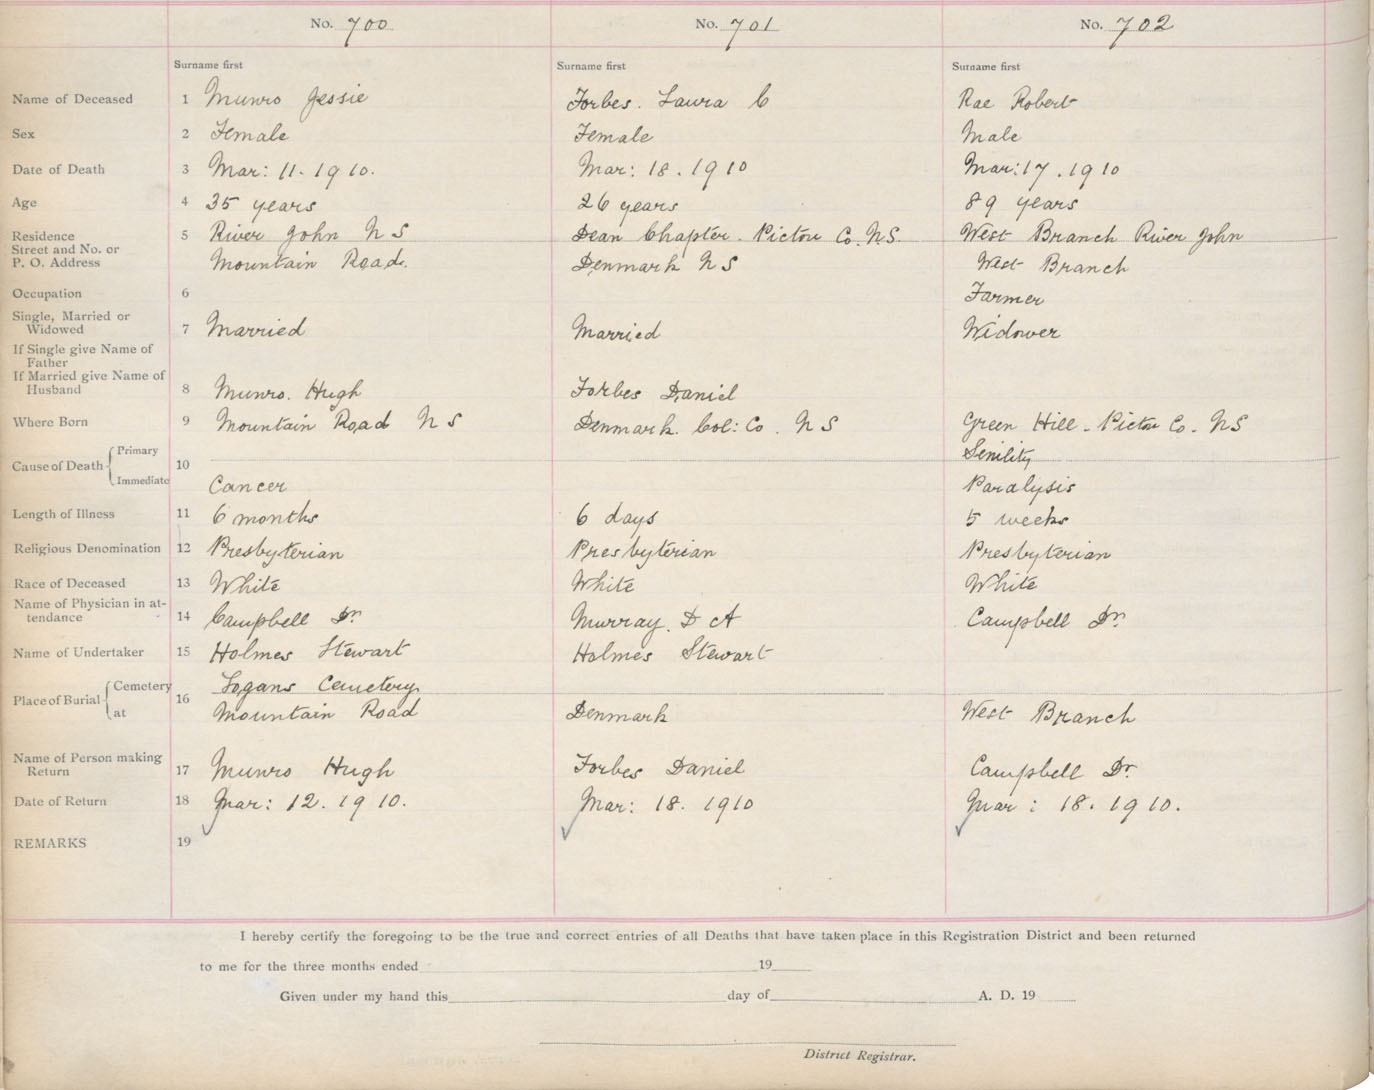 No. 700 No. 701 No. 702
Surname first Surname first Surname first
Name of Deceased 1 Munro Jessie Forbes. Laura C Rae Robert
Sex 2 Female Female Male
Date of Death 3 Mar: 11. 1910. Mar: 18. 1910 Mar: 17. 1910
Age 4 35 years 26 years 89 years
Residence 5 River John N S Dean Chapter. Pictou Co. N.S. West Branch River John
Street and No. or
P. O. Address Mountain Road. Denmark N S West Branch
Occupation 6 Farmer
Single, Married or
Widowed 7 Married Married Widower
If Single give Name of
Father
If Married give Name of
Husband 8 Munro. Hugh Forbes Daniel
Where Born 9 Mountain Road N S Denmark. Col: Co. N S Green Hill. Pictou Co. N S
Cause of Death Primary 10 Senility
Immediate Cancer Paralysis
Length of Illness 11 6 months 6 days 5 weeks
Religious Denomination 12 Presbyterian Presbyterian Presbyterian
Race of Deceased 13 White White White
Name of Physician in at-
tendance 14 Campbell Dr. Murray. D A Campbell Dr.
Name of Undertaker 15 Holmes Stewart Holmes Stewart
Place of Burial Cemetery 16 Logans Cemetery
at Mountain Road Denmark West Branch
Name of Person making
Return 17 Munro Hugh Forbes Daniel Campbell Dr.
Date of Return 18 Mar: 12. 1910. Mar: 18. 1910 Mar: 18. 1910.
REMARKS 19
I hereby certify the foregoing to be the true and correct entries of all Deaths that have taken place in this Registration District and been returned
to me for the three months ended 19
Given under my hand this day of A. D. 19
District Registrar.